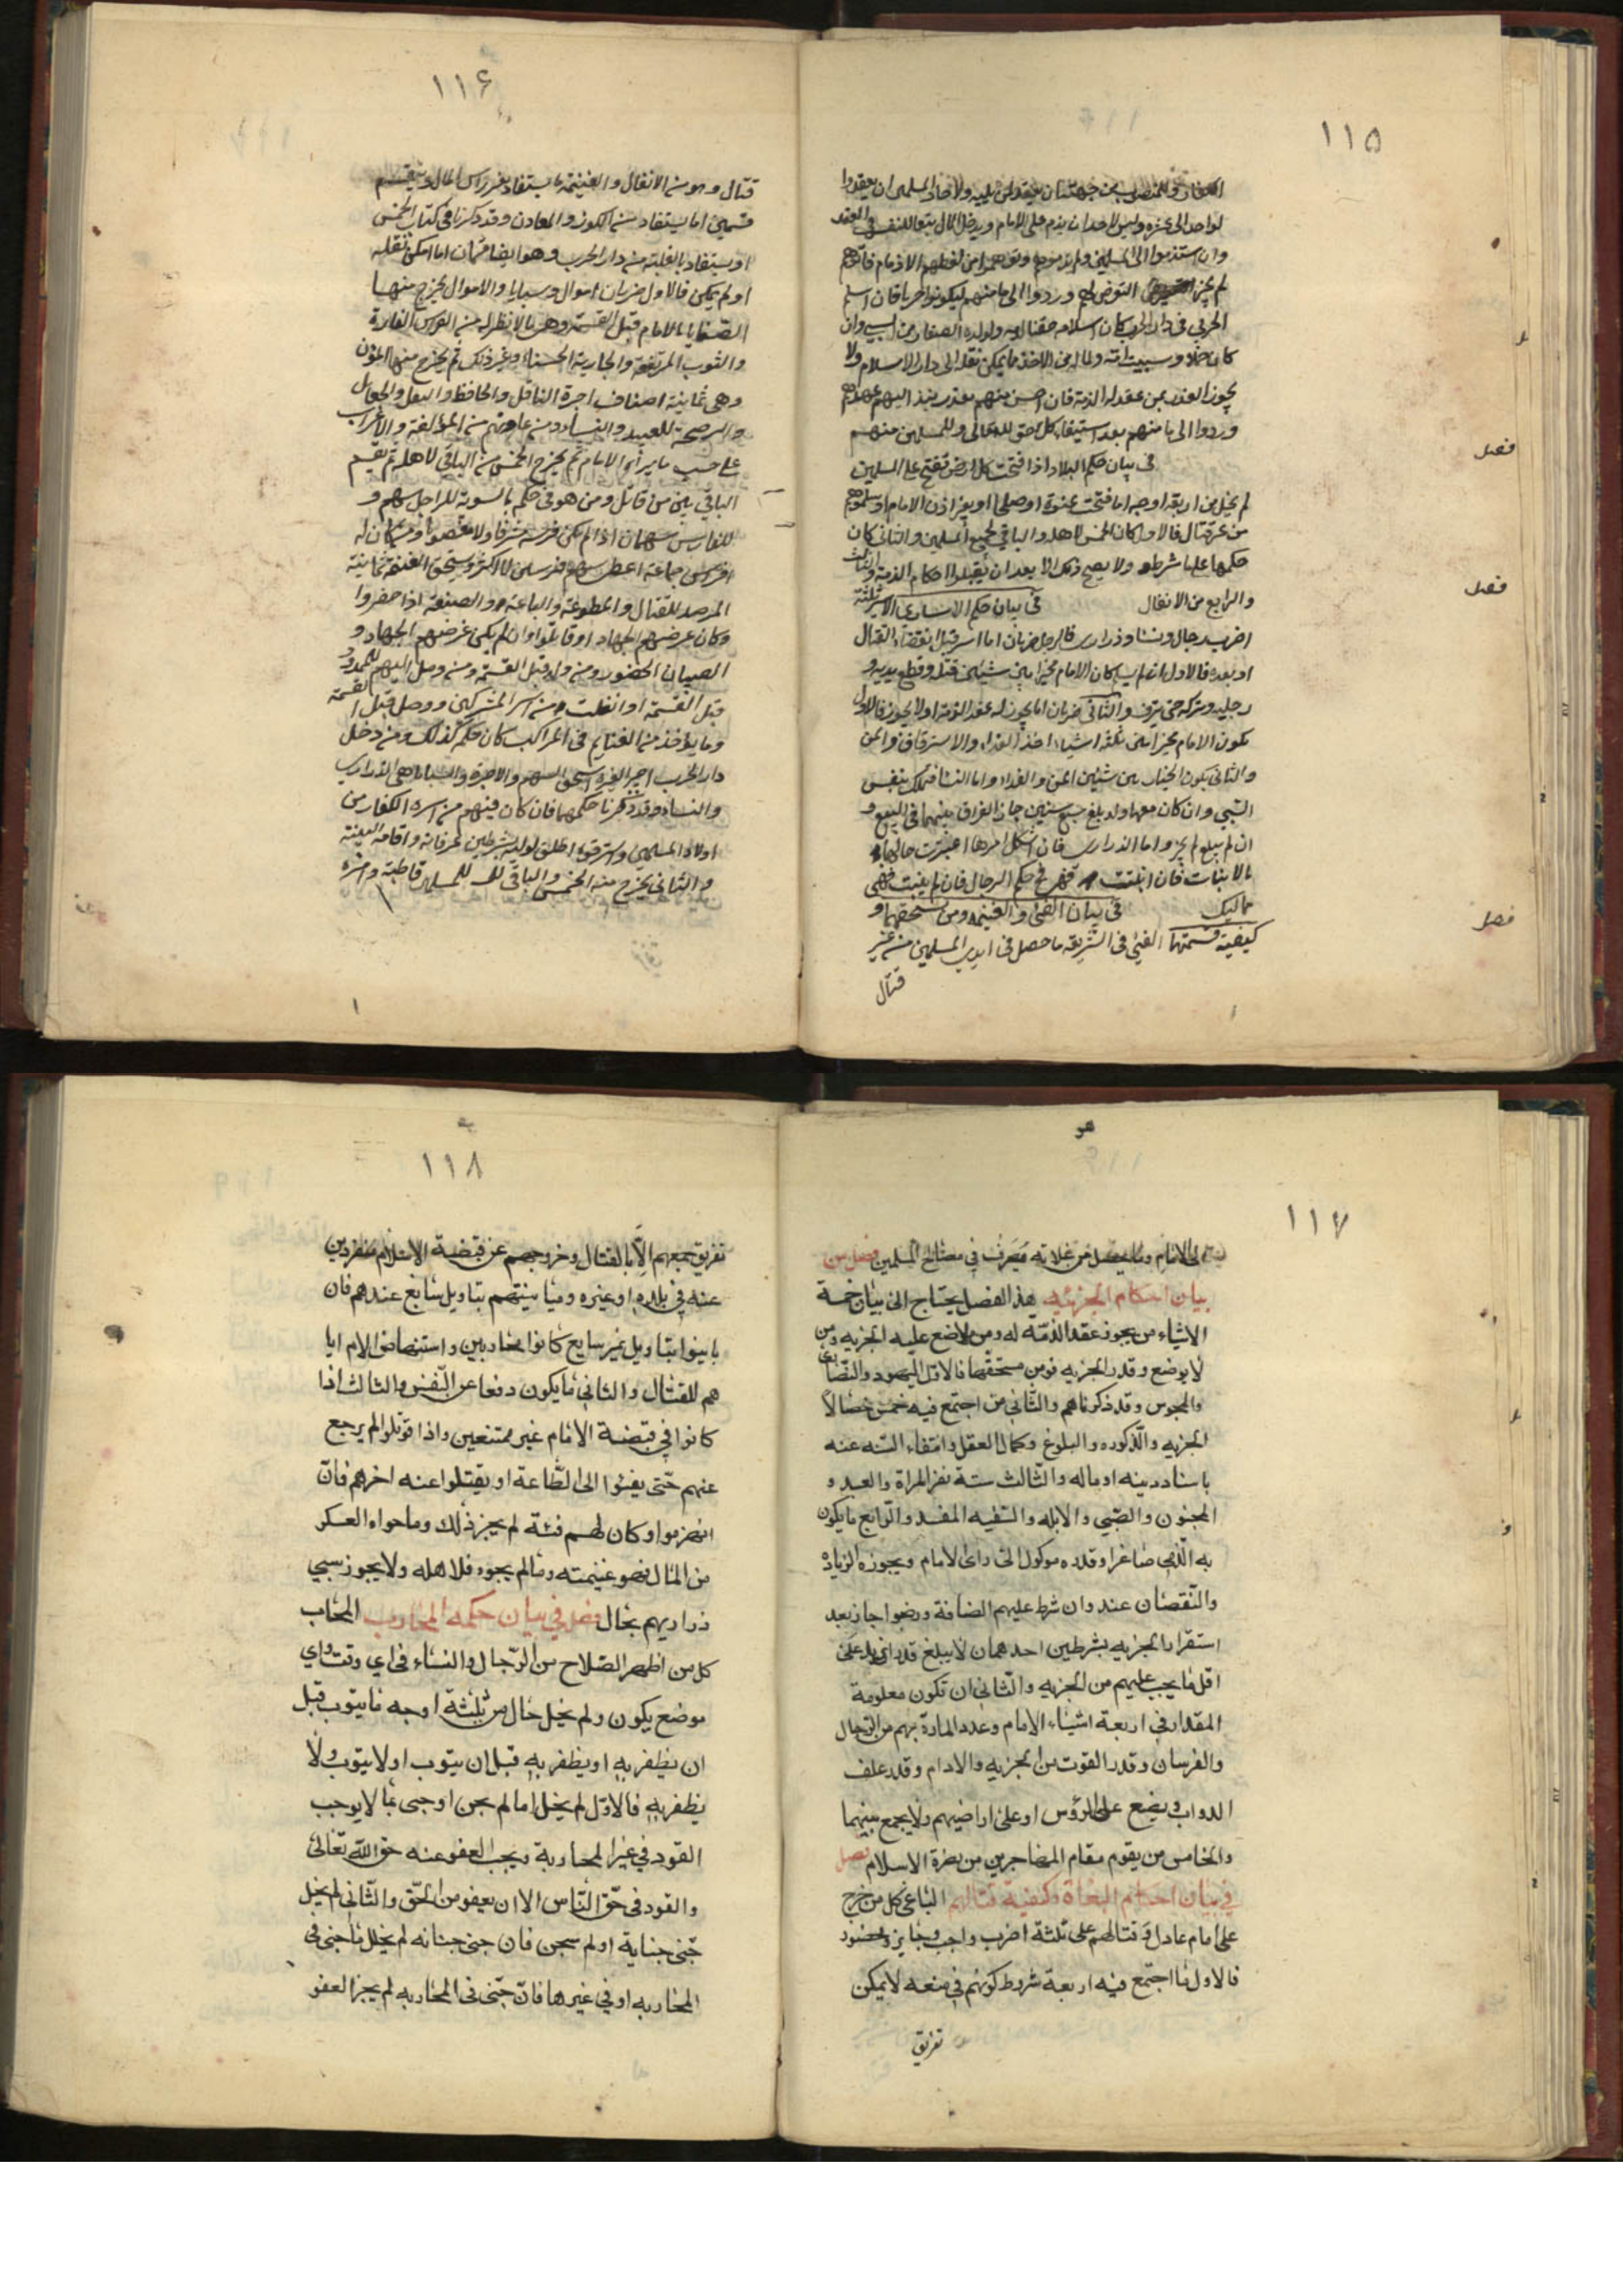 ١١٥
لواحد الى عشرة وليس لاحد ان يذم على الامام ويدخل المال تبعا للنفس في العقد
لم يجز التعرض لهم وردوا الى مامنهم ليكونوا حربا فان اسلم
الحربي في دار الحرب كان اسلامه حقنا لدمه ولولده الصغار من السبي وان
يجوز الغدر بمن عقد له الذمة فان احس منهم بغدر ينبذ اليهم عهدهم
وردوا الى مامنهم بعد استيفاء كل حق لله تعالى وللمسلمين منهم
فصل
في بيان حكم البلاد اذا فتحت كل ارض تفتح على المسلمين
لم يخل من اربعة اوجه اما فتحت عنوة او صلحا او بغير اذن الامام او سلموهم
من غير قتال فالاول كان الخمس لاهله والباقي لجميع المسلمين والثاني كان
حكمها على ما شرطه ولا يصح ذلك الا بعد ان يقبلوا احكام الذمة والثالث
فصل
والرابع من الانفال في بيان حكم الاسارى الاسير ثلثة
اضرب رجال ونساء وذراري فالرجل ضربان اما اسر قبل انقضاء القتال
او بعده فالاول ان لم يسلم كان الامام مخيرا بين شيئين قتله وقطع يديه و
رجليه وتركه حتى ينزف والثاني ضربان اما يجوز له عقد الذمة او لا يجوز فالاول
يكون الامام مخيرا بين ثلثة اشياء اخذ الفداء والاسترقاق والمن
والثاني يكون الخيار بين شيئين المن والفداء واما النساء فتملك بنفس
السبي وان كان معها ولد بلغ سبع سنين جاز الفراق بينهما في البيع و
ان لم يبلغ لم يجز واما الذراري فان اشكل امرها اعتبرت حالها
بالانبات فان انبتت فهي في حكم الرجال فان لم ينبت فهي
فصل
مماليك في بيان الفيء والغنيمة ومن يستحقهما و
كيفية قسمتها الفيء في الشريعة ما حصل في ايدي المسلمين من غير
قتال
١١۶
قتال وهو من الانفال والغنيمة ما يستفاد بغير راس المال وينقسم
قسمين اما يستفاد من الكنوز والمعادن وقد ذكرنا في كتاب الخمس
او يستفاد بالغلبة من دار الحرب وهو ايضا قسمان اما امكن نقله
او لم يمكن فالاول ضربان اموال وسبايا والاموال يخرج منها
الصفايا للامام قبل القسمة وهي ما لا نظير له من الفرس الفارة
والثوب المرتفعة والجارية الحسناء وغير ذلك ثم يخرج منها المؤن
وهي ثمانية اصناف اجرة الناقل والحافظ والنفل والجعال
والرضخة للعبيد والنساء ومن عاونهم من المؤلفة والاعراب
على حسب ما يراه الامام ثم يخرج الخمس من الباقي لاهله ثم يقسم
الباقي بين من قاتل ومن هو في حكمه بالسوية للراجل سهم و
افراس جماعة اعطى سهم فرسين لا اكثر ويستحق الغنيمة ثمانية
المرصد للقتال والمطوعة والباعة والصنعة اذا حضروا
وكان غرضهم الجهاد او قاتلوا وان لم يكن غرضهم الجهاد و
الصبيان الحضور ومن ولد قبل القسمة ومن وصل اليهم للمدد
قبل القسمة او انفلت من اسر المشركين ووصل قبل القسمة
وما يؤخذ من الغنايم في المراكب كان حكمه كذلك ومن دخل
دار الحرب اجير الغيره استحق السهم والاجرة والسبايا هي الذراري
والنساء وقد ذكرنا حكمهما فان كان فيهم من اسره الكفار من
اولاد المسلمين واسترقوه اطلق
والثاني يخرج منه الخمس والباقي للمسلمين قاطبة وامره
١١٧
الى الامام وما يحصل من غلاته يصرف في مصالح المسلمين فصل من
بيان احكام الجزيه هذا الفصل يحتاج الى بيان خمسة
الاشياء من يجوز عقد الذمة له ومن لا ضع عليه الجزيه ومن
لا يوضع وقدر الجزيه ومن مستحقها فالاول اليهود والنصارى
والمجوس وقد ذكرناهم والثاني من اجتمع فيه خمس خصالا
الجزيه والذكوره والبلوغ وكمال العقل وانتفاء السنه عنه
بانساد دينه او ماله والثالث ستة نفر المراة والعبد و
المجنون والصبي والابله والسفيه المفسد والرابع ما يكون
به الذمي صاغرا وقدره موكول الى راى الامام ويجوزه الزياده
والنقصان عند وان شرط عليهم الضافة ورضوا جاز بعد
استقرار الجزيه بشرطين احدهما ان لا يبلغ قدر
اقل ما يجب عليهم من الجزيه والثاني ان تكون معلومة
المقدار في اربعة اشياء الامام وعدد المارة بهم من الرجال
والفرسان وقدر القوت من الجزيه والادام وقدر علف
الدواب ويضع على الرؤس او على اراضيهم ولا يجمع بينهما
والخامس من يقوم مقام المهاجرين من نصرة الاسلام فصل
في بيان احكام البغاة وكيفية قتالهم الباغي كل من خرج
على امام عادل وقتالهم على ثلثة اضرب واجب وجايز ومحضور
فالاول ما اجتمع فيه اربعة شروط كونهم في منعة لا يمكن
تفريق
١١٨
تفريق جمعهم الا بالقتال وخروجهم عن قبضة الاسلام منفردين
عنه في بلده او غيره ومباينتهم بتاويل سايغ عندهم فان
باينوا بتاويل غير سايغ كانوا محاربين واستنهاض الامام ايا
هم للقتال والثاني ما يكون دفعا عن النفس والثالث اذا
كانوا في قبضة الامام غير ممتنعين واذا قوتلوا لم يرجع
عنهم حتى يفيئوا الى الطاعة او يقتلوا عنه اخرهم فان
انهزموا وكان لهم فئة لم يجز ذلك وما حواه العسكر
من المال فهو غنيمته وما لم يحوه فلاهله ولا يجوز سبي
ذراريهم بحال فصل في بيان حكمه المحارب المحاب
كل من اظهر السلاح من الرجال والنساء في اي وقت واي
موضع يكون ولم يخل حال من ثلثة اوجه ما يتوب قبل
ان يظفر به او يظفر به قبل ان يتوب او لا يتوب ولا
يظفر به فالاول لم يخل اما لم يجن او جنى بما لا يوجب
القود في غير المحاربة ويجب العفو عنه حق الله تعالى
والقود في حق الناس الا ان يعفو من الحق والثاني لم يخل
جنى جناية او لم يجن فان جنى جنايه لم يخل ما جنى فى
المحاربه او في غيرها فان جنى فى المحاربه لم يجز العفو